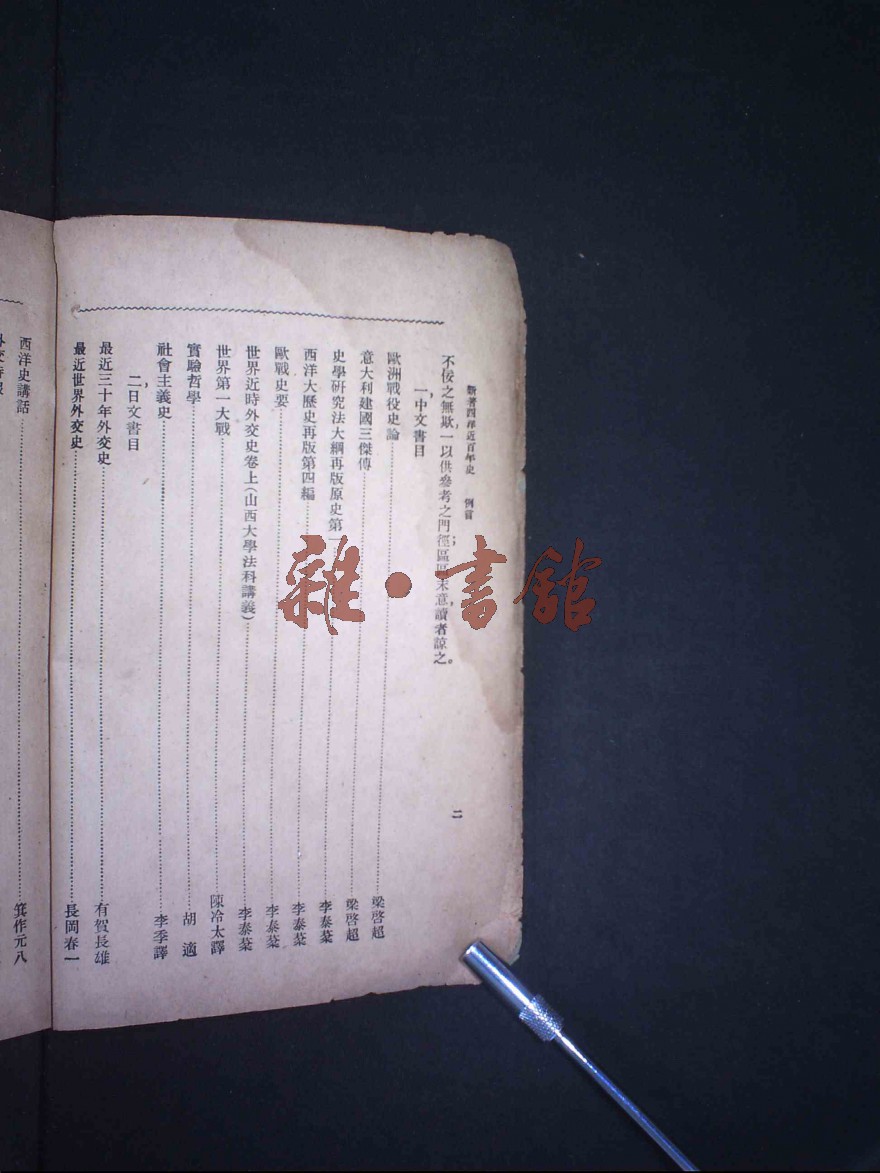 新著西洋近百年史 例言 二
不佞之無欺,一以供參考之門徑;區區末意,讀者諒之。
一,中文書目
歐洲戰役史論 梁啓超
意大利建國三傑傳 梁啓超
史學研究法大綱再版原史第一 李泰棻
西洋大歷史再版第四編 李泰棻
歐戰史要 李泰棻
世界近時外交史卷上(山西大學法科講義) 李泰棻
世界第一大戰 陳冷太譯
實驗哲學 胡適
社會主義史 李季譯
二,日文書目
最近三十年外交史 有賀長雄
最近世界外交史 長岡春一
西洋史講話 箕作元八
雜·書館